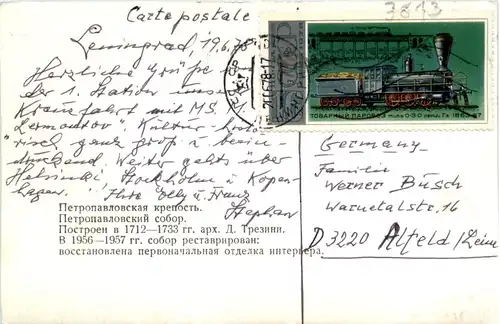 3813
Carte postale
Leningrad, 19.6.78
Herzliche Grüße von
der 1. Station unserer
Kreuzfahrt mit MS.
Lermontov. Kultur-histo-
risch ganz groß u. beein-
druckend. Weiter gehts über
Helsinki, Stockholm u. Kopen-
hagen. Ihre Elly u. Franz
Stephan
Петропавловская крепость.
Петропавловский собор.
Построен в 1712—1733 гг. арх. Д. Трезини.
В 1956—1957 гг. собор реставрирован:
восстановлена первоначальная отделка интерьера.
СССР
ТОВАРНЫЙ ПАРОВОЗ типа 0-3-0 серии Гв
Germany
Familie
Werner Busch
Warnetalstr. 16
D 3220 Alfeld/Leine